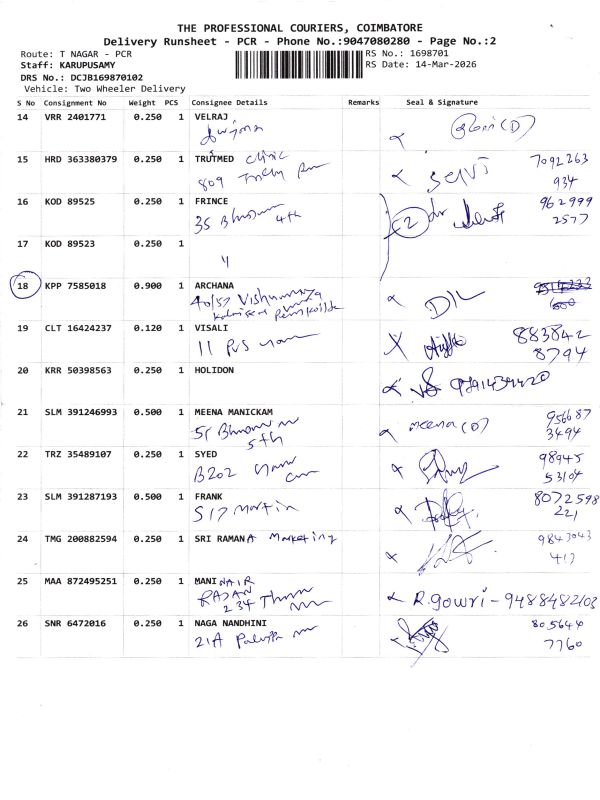 THE PROFESSIONAL COURIERS, COIMBATORE
Delivery Runsheet - PCR - Phone No.:9047080280 - Page No.:2
Route: T NAGAR - PCR RS No.: 1698701
Staff: KARUPUSAMY RS Date: 14-Mar-2026
DRS No.: DCJB169870102
Vehicle: Two Wheeler Delivery
S No Consignment No Weight PCS Consignee Details Remarks Seal & Signature
14 VRR 2401771 0.250 1 VELRAJ
(D)
15 HRD 363380379 0.250 1 TRUTMED clinic 7092263
809 934
16 KOD 89525 0.250 1 FRINCE 962999
35 4th 2 2577
17 KOD 89523 0.250 1
18 KPP 7585018 0.900 1 ARCHANA
40/57
19 CLT 16424237 0.120 1 VISALI 883842
11 PVS 8794
20 KRR 50398563 0.250 1 HOLIDON 9791439420
21 SLM 391246993 0.500 1 MEENA MANICKAM meena (D) 956687
5th 3494
22 TRZ 35489107 0.250 1 SYED 98945
B202 53104
23 SLM 391287193 0.500 1 FRANK 8072598
S17 Martin 221
24 TMG 200882594 0.250 1 SRI RAMANA Marketing 9843043
413
25 MAA 872495251 0.250 1 MANI NAIR
RAJAN R. gowri - 9488482103
234
26 SNR 6472016 0.250 1 NAGA NANDHINI 805644
21A 7760